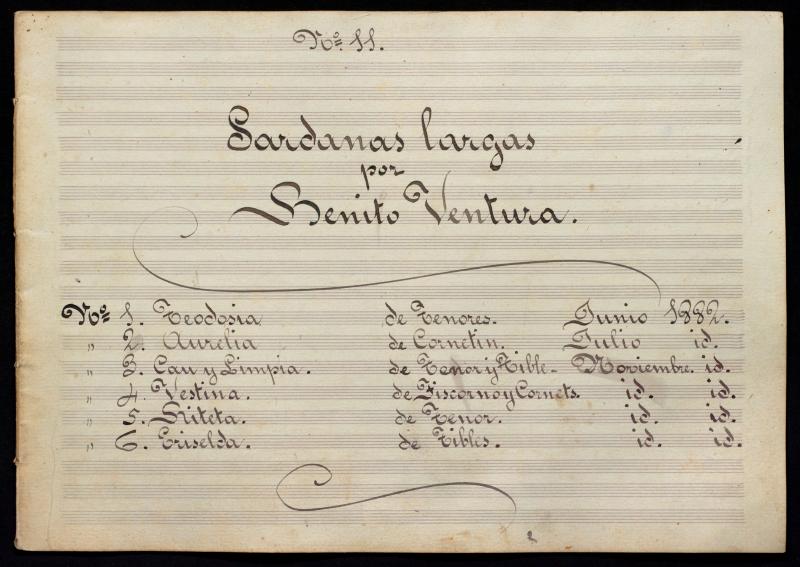 Nº 11.
Sardanas largas
por
Benito Ventura.
Nº 1. Teodosia de Tenores. Junio 1882.
" 2. Aurelia de Cornetin. Julio id.
" 3. Cau y Limpia. de Tenor y Tible. Noviembre. id.
" 4. Vestina. de Fiscorno y Cornets. id. id.
" 5. Riteta. de Tenor. id. id.
" 6. Griselda. de Tibles. id. id.